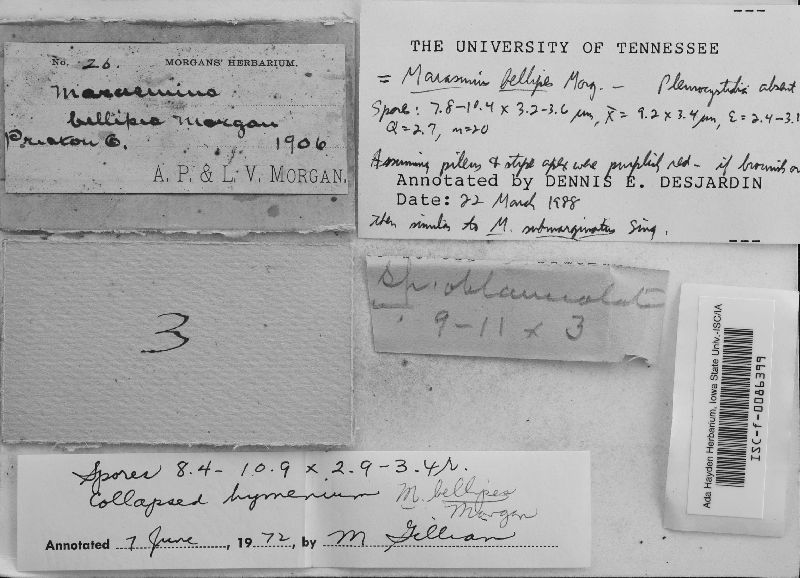 No. 26. MORGANS' HERBARIUM.
Marasmius
bellipes Morgan
Preston O. 1906
A. P. & L. V. MORGAN.
THE UNIVERSITY OF TENNESSEE
= Marasmius bellipes Morg. – Pleurocystidia absent
Spores: 7.8–10.4 × 3.2–3.6 µm, x̄ = 9.2 × 3.4 µm, E = 2.4–3.1
Q = 2.7, n=20
Assuming pileus & stipe apex were purplish red – if brownish or
Annotated by DENNIS E. DESJARDIN
Date: 22 March 1988
then similar to M. submarginatus Sing.
3
Sp. oblanceolate
9–11 x 3
Ada Hayden Herbarium, Iowa State Univ.-ISC/IA
ISC-f-0086399
Spores 8.4 – 10.9 x 2.9 – 3.4 µ.
Collapsed hymenium M. bellipes
Morgan
Annotated 7 June, 1972, by M Gillian